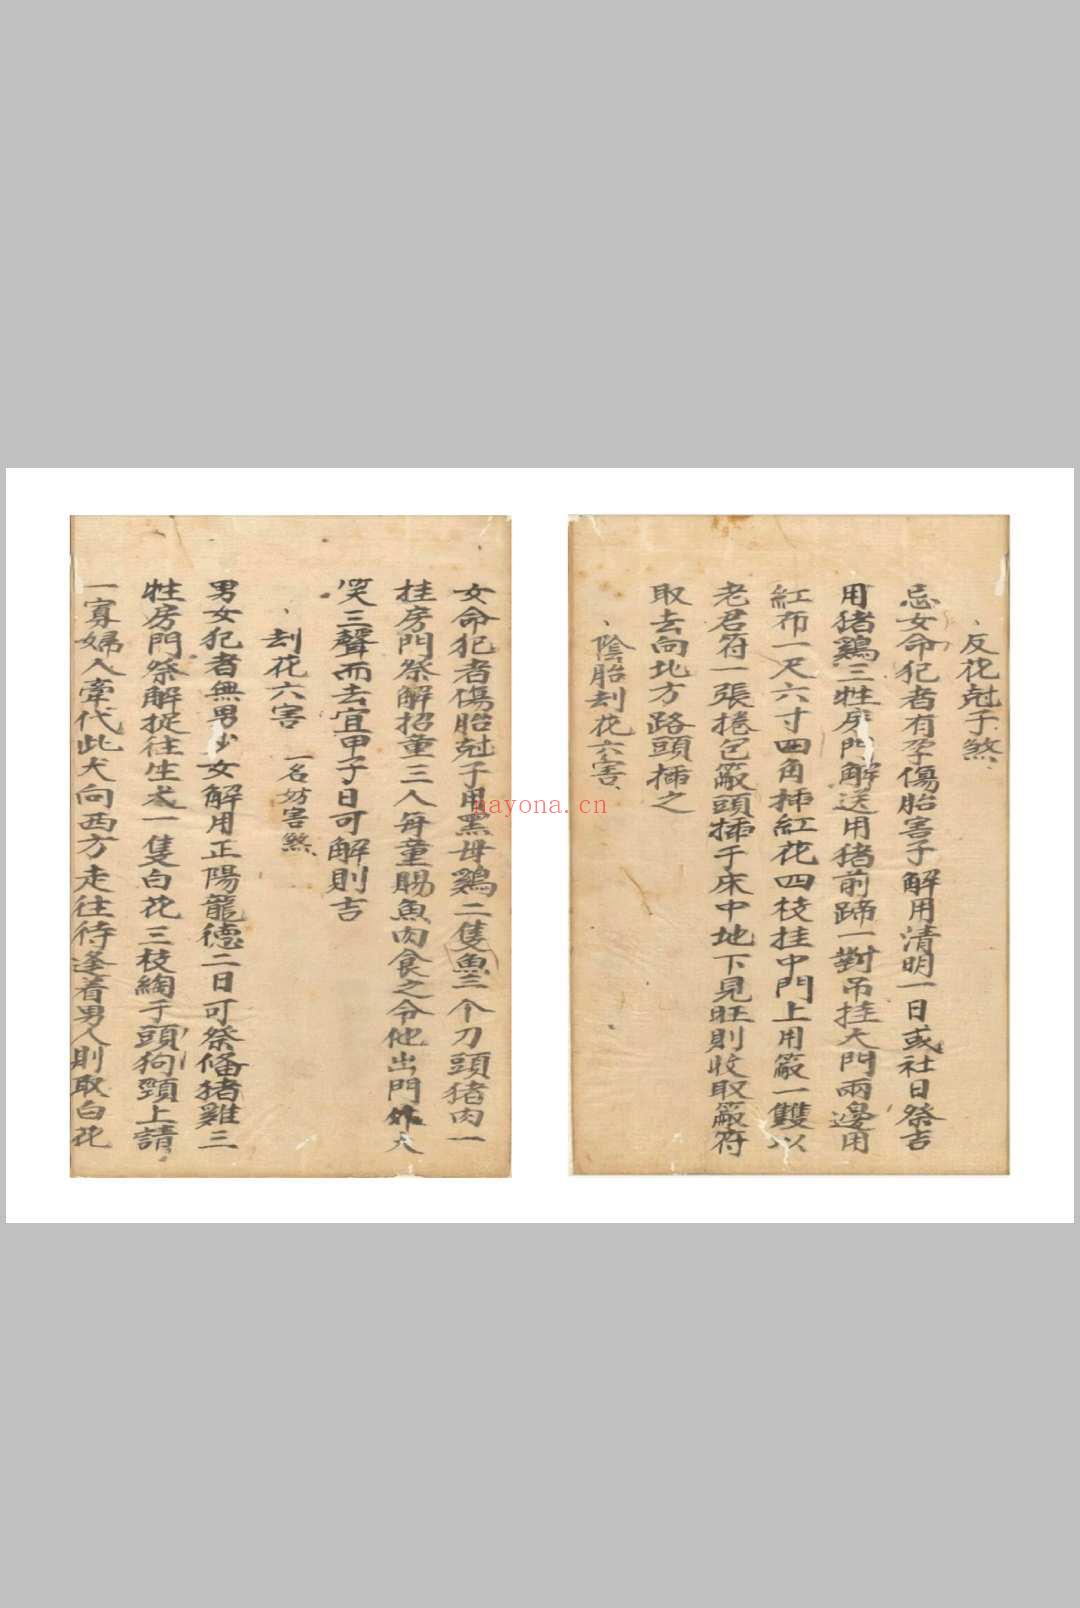 反花尅子煞
忌女命犯者有孕傷胎害子解用清明一日或社日祭吉
用猪鷄三牲房門解送用猪前蹄一對吊挂大門兩邊用
紅布一尺六寸四角揷紅花四枝挂中門上用箭一雙以
老君符一張捲包箭頭揷于床中地下見旺則收取箭符
取去向北方路頭揷之
陰胎刦花六害
女命犯者傷胎尅子用黑母鷄二隻魚三个刀頭猪肉一
挂房門祭解招童三人每童賜魚肉食之令他出門外大
笑三聲而去宜甲子日可解則吉
刦花六害 一名妨害煞
男女犯者無男少女解用正陽龍德二日可祭俻猪雞三
牲房門祭解捉往生犬一隻白花三枝綯于頭狗頸上請
一寡婦人牽代此犬向西方走往待逢着男人則取白花
nayona.cn